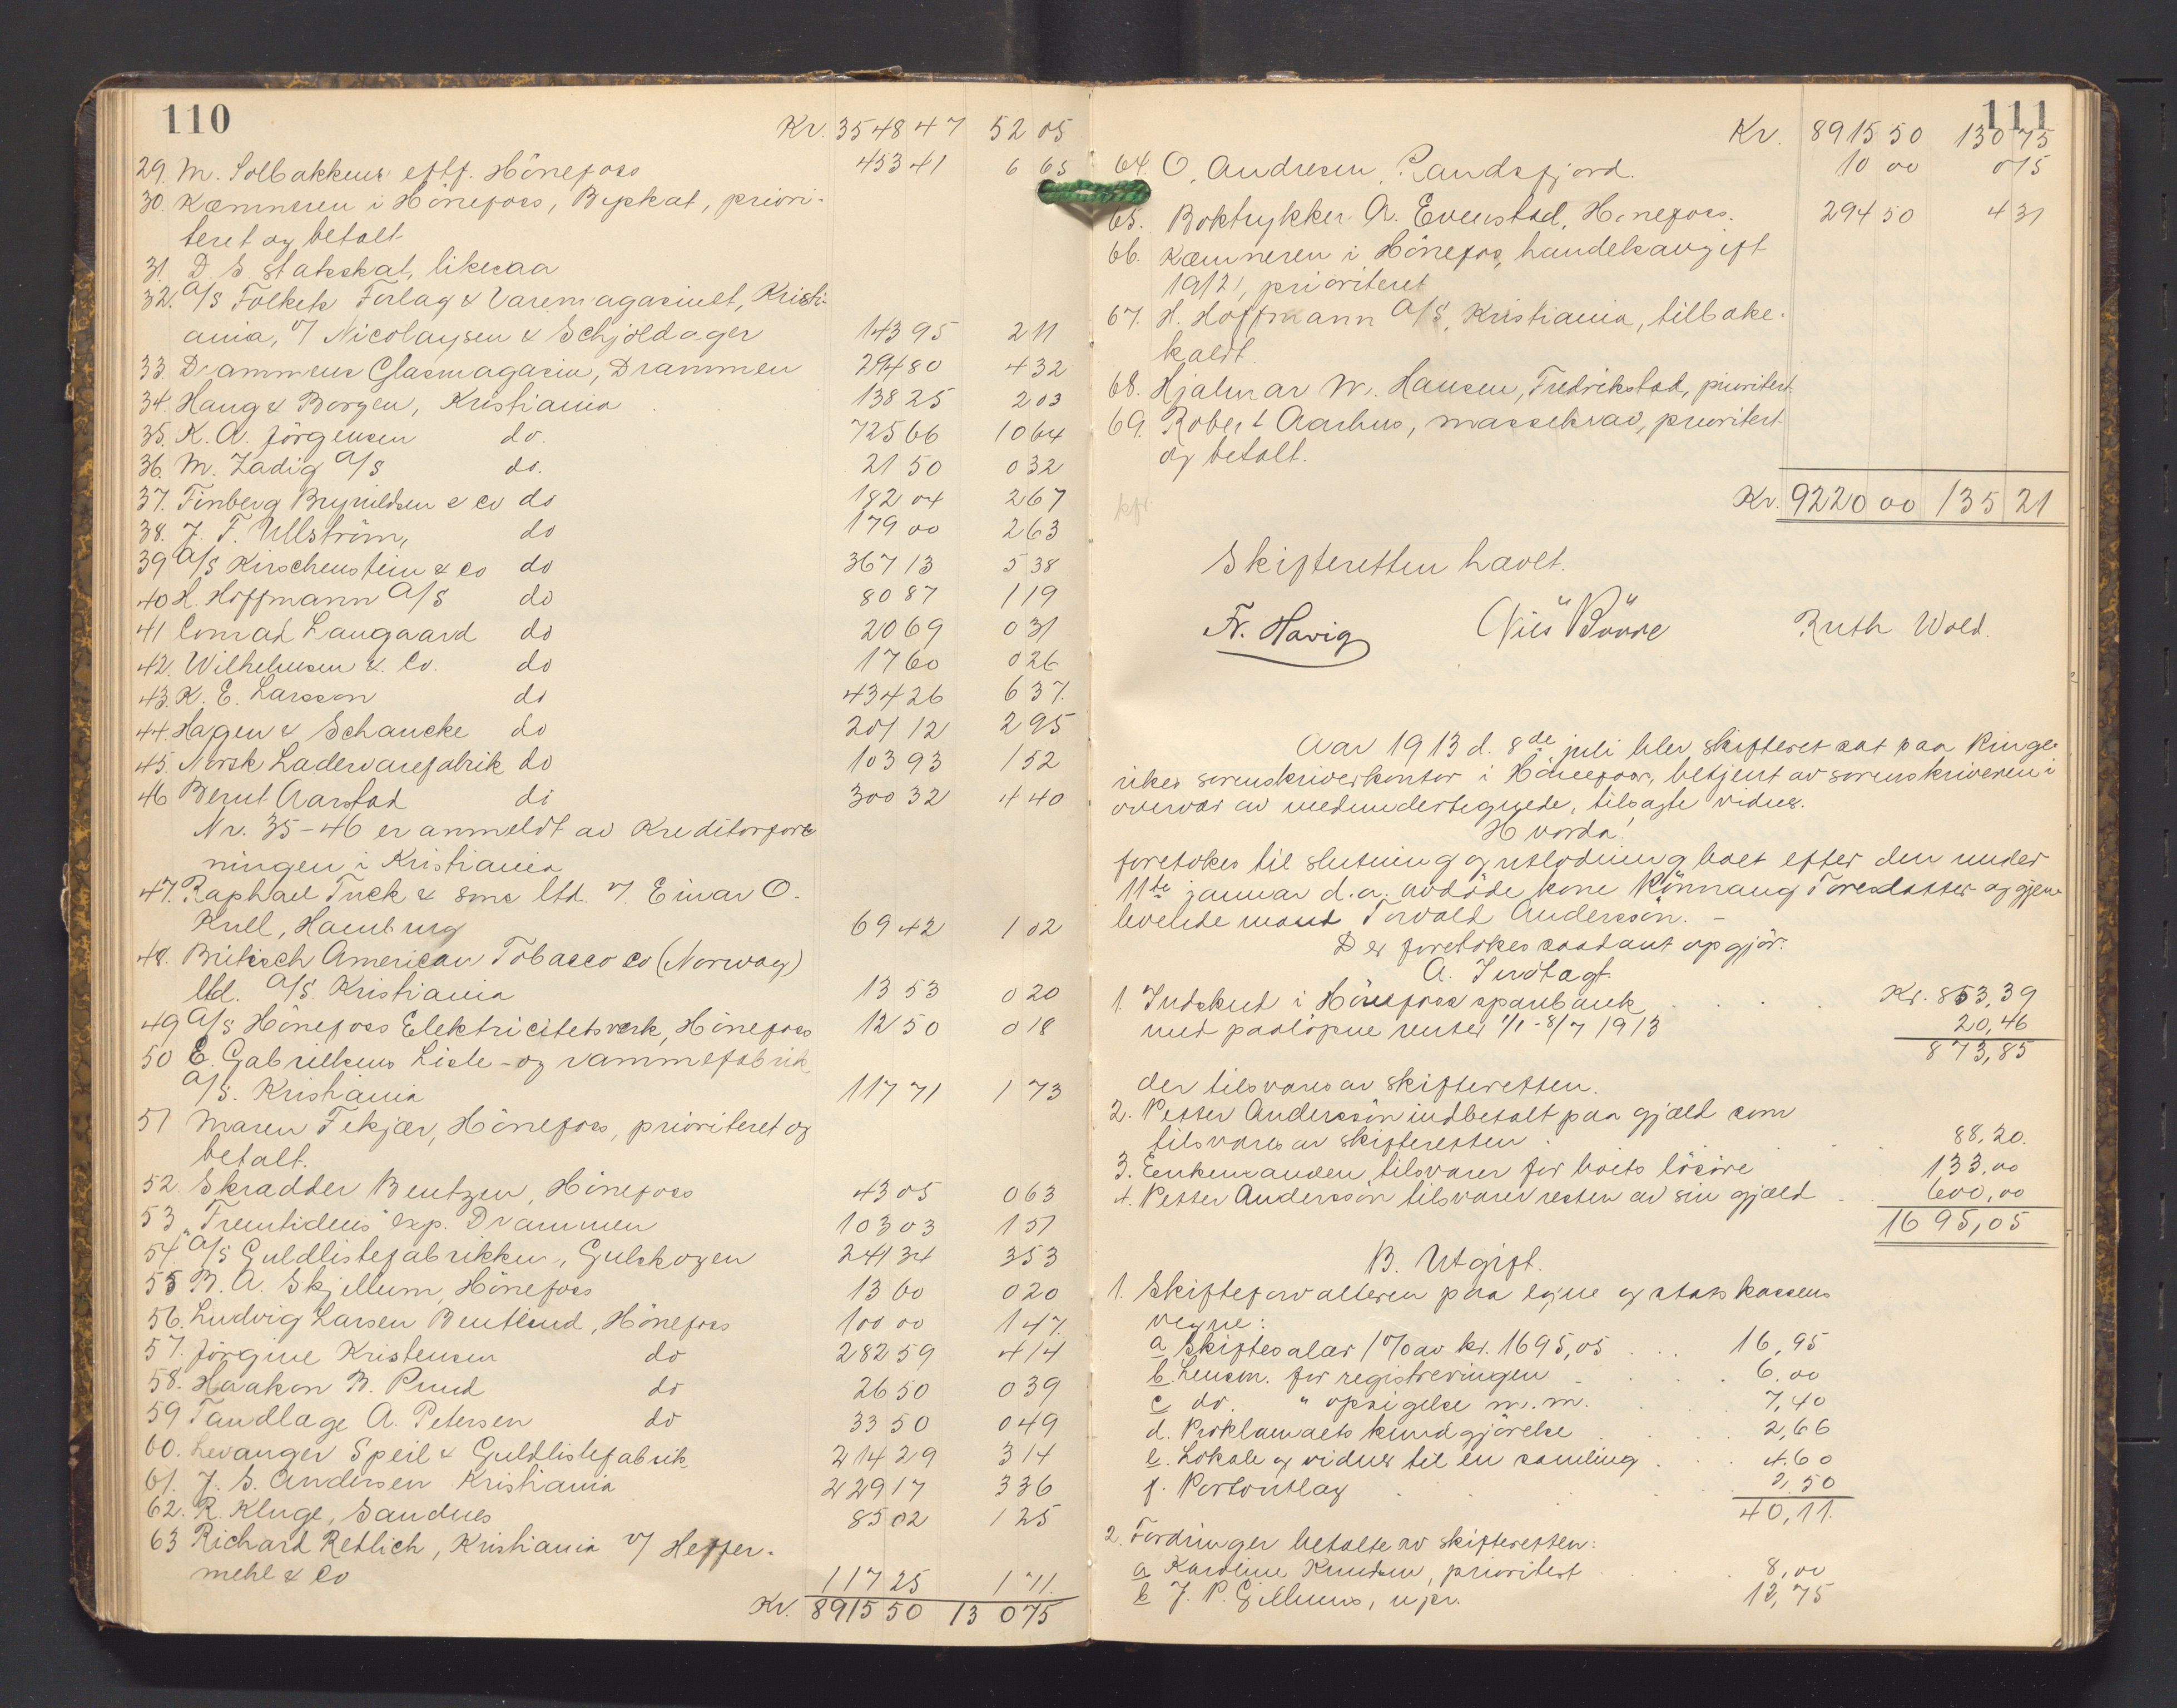 110
Kr. 3548 47 52 05
29. M. Solbakkens eftf. Hönefoss 453 41 6 65
30. Kæmneren i Hönefoss, Byskat, priori-
teret og betalt
31. D. S. statsskat, likesaa
32. A/S Folkets Forlag & Varemagasinet, Kristi-
ania, v/ Nicolaysen & Schjoldager 143 95 2 11
33. Drammens Glasmagasin, Drammen 294 80 4 32
34. Haug & Borgen, Kristiania 138 25 2 03
35. K. A. Jörgensen do. 725 66 10 64
36. M. Zadig A/S do. 21 50 0 32
37. Finberg Brynildsen & Co do 182 04 2 67
38. J. F. Ullström, do 179 00 2 63
39 A/S Kirschenstein & Co do 367 13 5 38
40 H. Hoffmann A/S do 80 87 1 19
41 Conrad Langaard do 20 69 0 31
42. Wilhelmsen & Co. do 17 60 0 26
43. K. E. Larsson do 434 26 6 37.
44. Hagen & Schancke do 201 12 2 95
45. Norsk Lædervarefabrik do 103 93 1 52
46 Bernt Aarstad do 300 32 4 40
Nr. 35-46 er anmeldt av Kreditorfore
ningen i Kristiania
47. Raphael Tuck & sons ltd. v/. Einar O.
Kull, Hamburg 69 42 1 02
48. Britisch American Tobacco Co (Norway)
ltd. A/S. Kristiania 13 53 0 20
49 A/S Hönefoss Elektricitetsverk, Hönefoss 12 50 0 18
50 E. Gabrielsens Liste- og rammefabrik
A/S. Kristiania 117 71 1 73
51 Maren Fekjær, Hönefoss, prioriteret og
betalt.
52. Skrædder Bentzen, Hönefoss 43 05 0 63
53 "Fremtidens" exp. Drammen 103 03 1 51
54 A/S Guldlistefabrikken, Gulskogen 241 34 3 53
55 B. A. Skjellum, Hönefoss 13 60 0 20
56. Ludvig Larsen Bentsrud, Hönefoss 100 00 1 47.
57. Jörgine Kristensen do 282 59 4 14
58. Haakon B. Pruud do 26 50 0 39
59 Tandlæge A. Petersen do 33 50 0 49
60. Levanger Speil & Guldlistefabrik 214 29 3 14
61. J. S. Andersen Kristiania 229 17 3 36
62. R. Kluge, Sandnes 85 02 1 25
63 Richard Retlich, Kristiania v/ Heffer-
mehl & Co 117 25 1 71.
Kr. 8915 50 130 75
111
Kr. 8915 50 130 75
64. O. Andresen, Randsfjord. 10 00 0 15
65. Boktrykker A. Evenstad, Hönefoss. 294 50 4 31
66. Kæmneren i Hönefos, handelsavgift
1912, prioriteret
67. H. Hoffmann A/S, Kristiania, tilbake-
kaldt.
68. Hjalmar W. Hansen, Fredrikstad, prioritert.
69. Robert Aarhus, massekrav, prioritert
og betalt.
Kr. 9220 00 135 21
Skifteretten hævet.
Fr. Havig Nils Ruth Wold.
Aar 1913 d. 8de juli blev skifteret sat paa Ringe-
rikes sorenskriverkontor i Hönefoss, betjent av sorenskriveren i
overvær av medundertegnede, tilsagte vidner.
Hvorda!
foretokes til slutning og utlodning boet efter den under
11te januar d.a. avdöde kone Rönnaug Toresdatter og gjen-
levende mand Torvald Anderssön. -
Der foretokes saadant opgjör:
A. Indtægt.
1. Indskud i Hönefoss sparebank Kr. 853,39
med paalöpne renter 1/1-8/7 1913 20,46
873,85
der tilsvares av skifteretten.
2. Petter Anderssön indbetalt paa gjæld som
tilsvares av skifteretten 88,20.
3. Enkemanden tilsvarer for boets lösöre 133,00
4. Petter Anderssön tilsvarer resten av sin gjæld 600,00
1695,05
B. Utgift.
1. Skifteforvalteren paa egne og statskassens
vegne:
a Skiftesalær 1% av kr. 1695,05 16,95
b. Lensm. for registreringen 6,00
c do. " opsigelse m.m. 7,40
d. Proklamaets kundgjörelse 2,66
e. Lokale og vidner til en samling 4,60
f. Portoutlæg 2,50
40,11.
2. Fordringer betalte av skifteretten:
a Karoline Knudsen, prioritert 8,00
b J. P. Gjellums, upr. 12,75